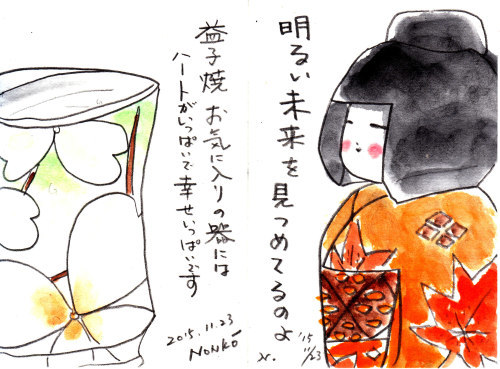 明るい未来を見つめてるのよ
'15
11/23
益子焼 お気に入りの器には
ハートがいっぱいで幸せいっぱいです
2015.11.23
NONKO